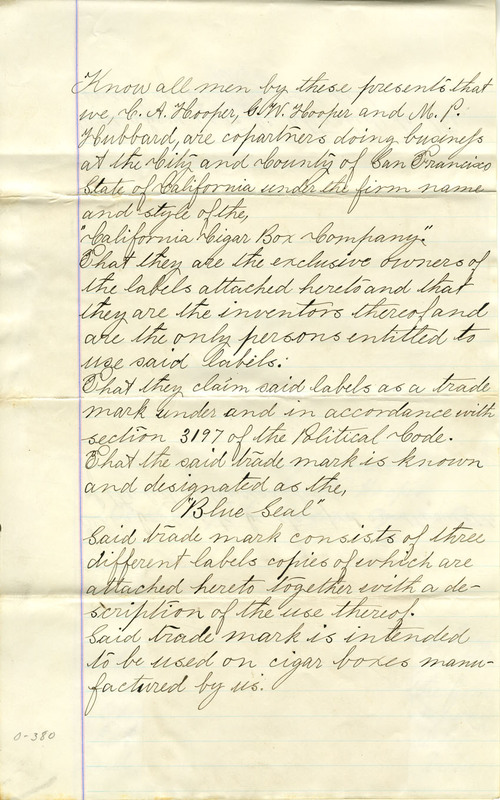 Know all men by these presents that
we, C. A. Hooper, C. W. Hooper and M. P.
Hubbard, are copartners doing business
at the City and County of San Francisco
State of California under the firm name
and style of the,
"California Cigar Box Company".
That they are the exclusive owners of
the labels attached hereto and that
they are the inventors thereof and
are the only persons entitled to
use said labels.
That they claim said labels as a trade
mark under and in accordance with
section 3197 of the Political Code.
That the said trade mark is known
and designated as the,
"Blue Seal"
Said trade mark consists of three
different labels copies of which are
attached hereto together with a de-
scription of the use thereof.
Said trade mark is intended
to be used on cigar boxes manu-
factured by us.
0-380